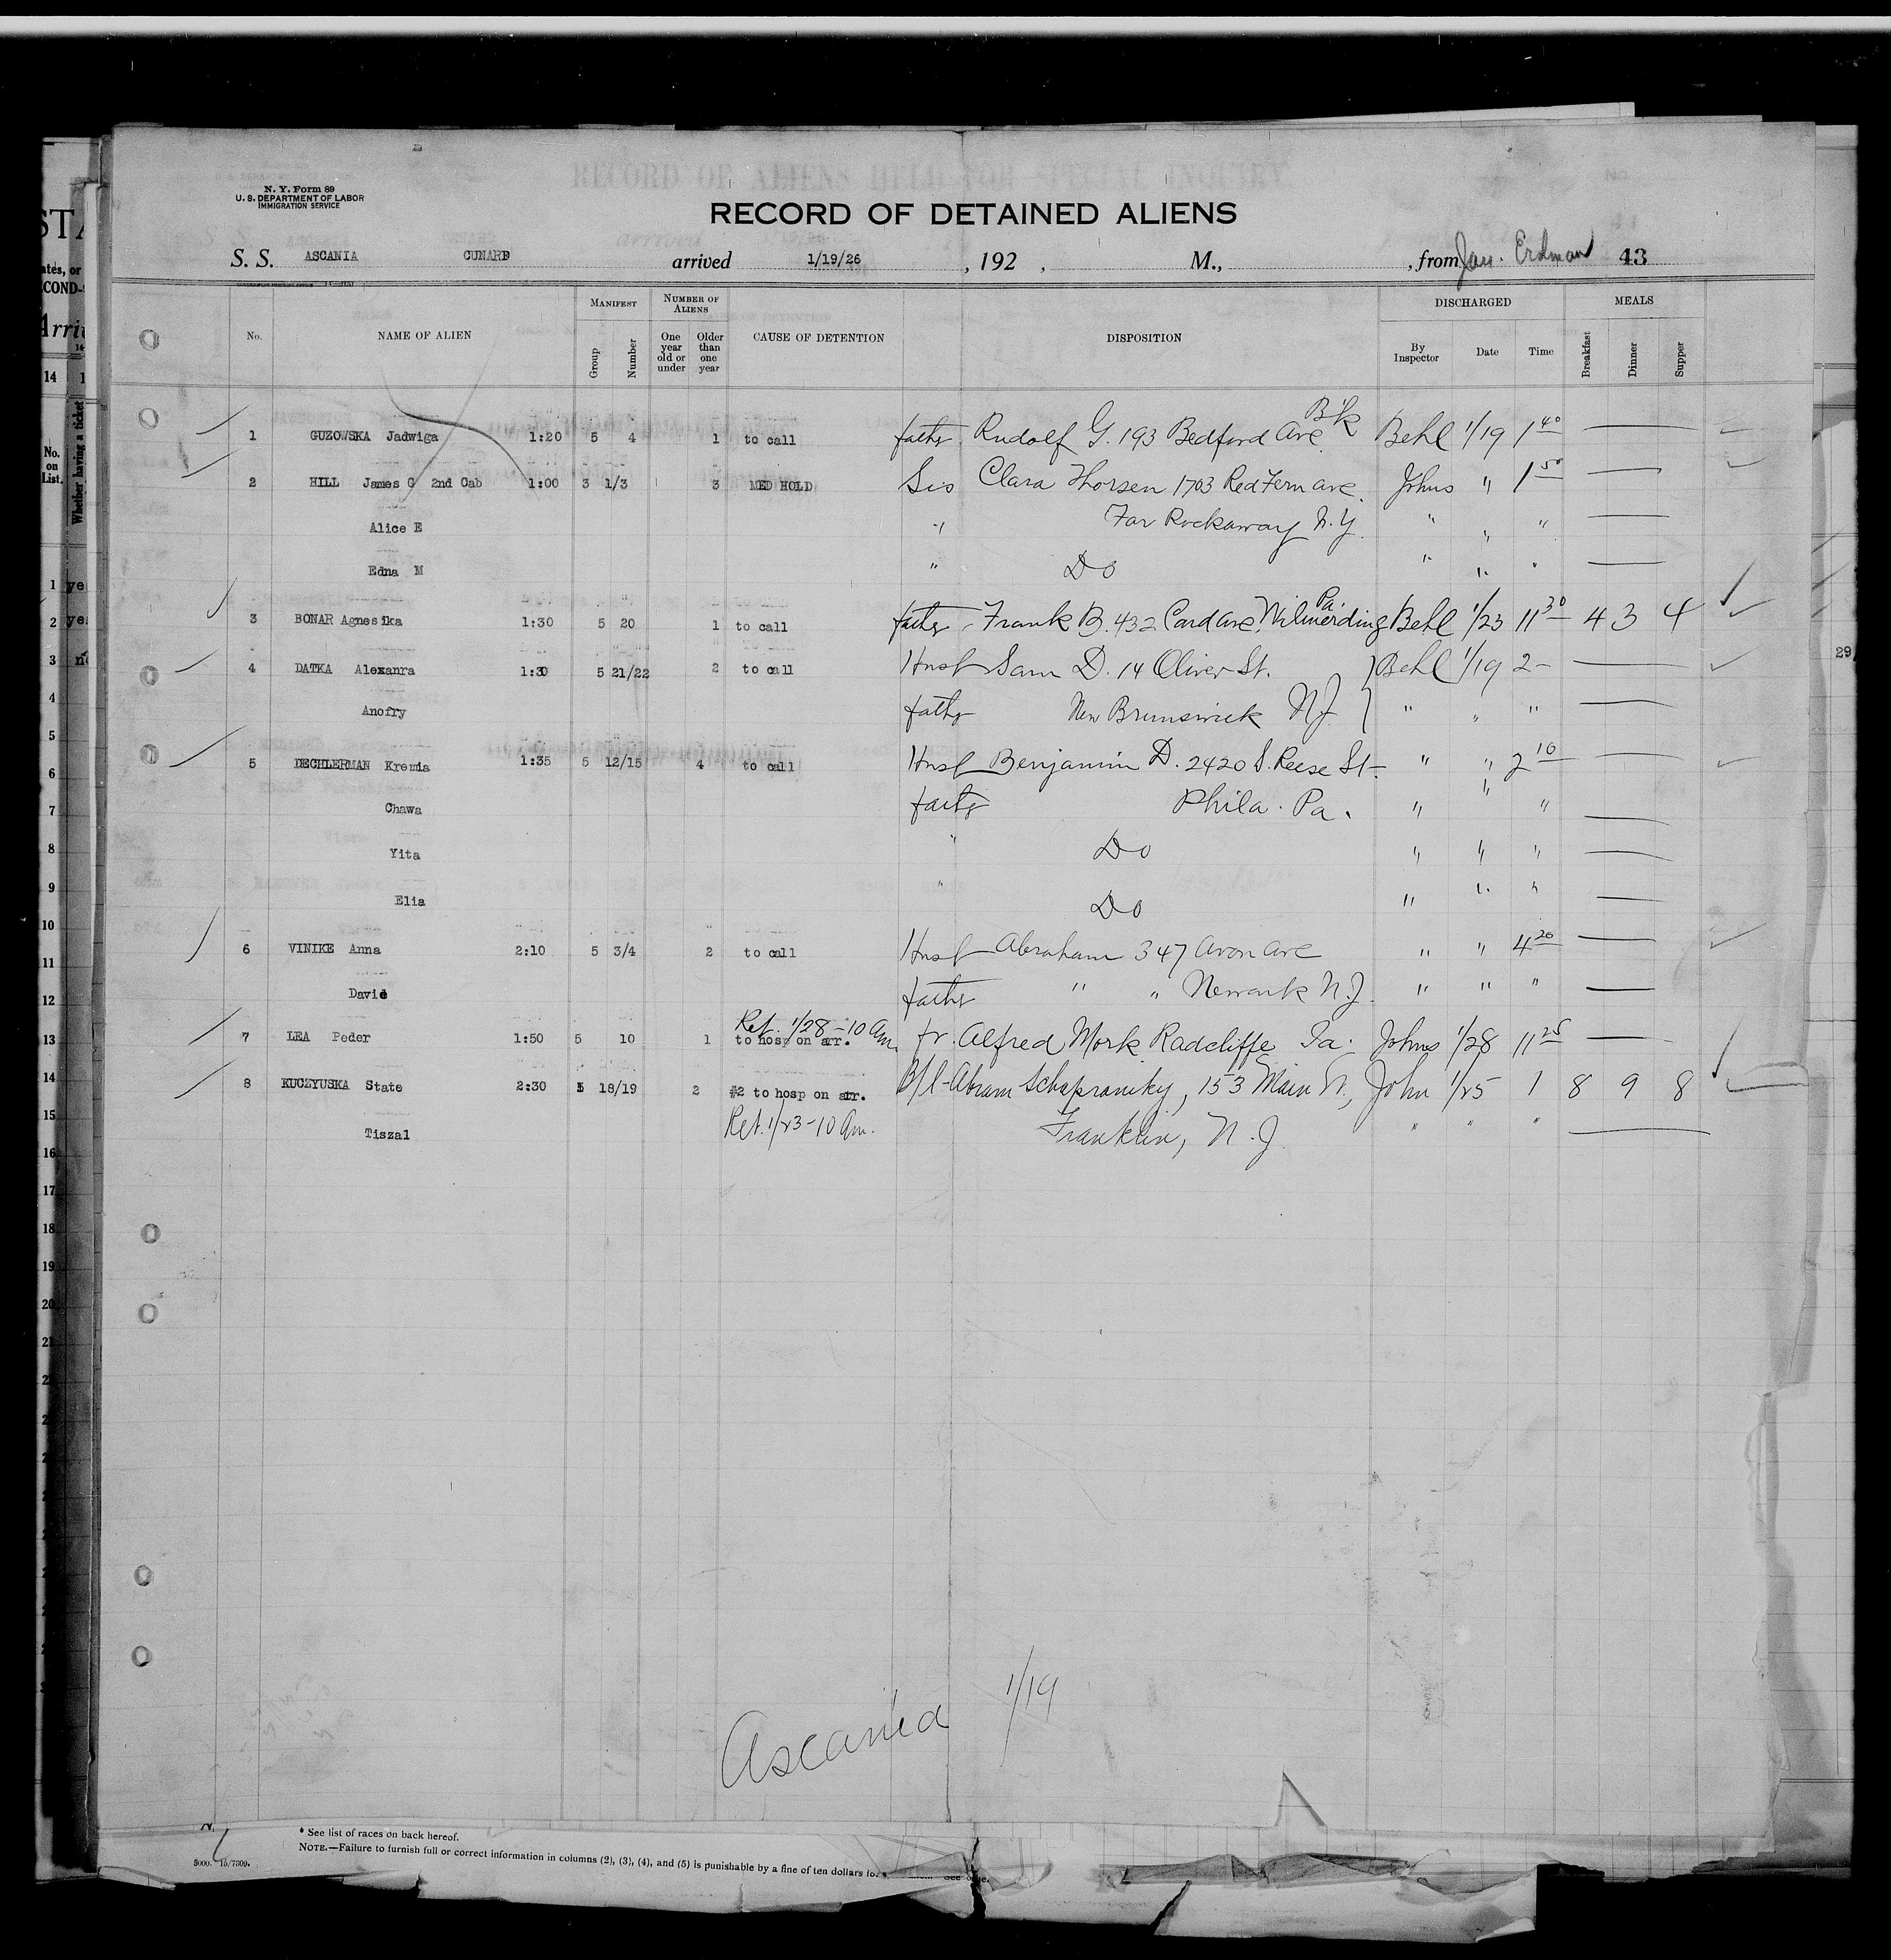 N. Y. Form 89
U. S. DEPARTMENT OF LABOR
IMMIGRATION SERVICE
RECORD OF DETAINED ALIENS
S. S. ASCANIA CUNARD arrived 1/19/26 , 192 , M., , from Erdman 43
MANIFEST NUMBER OF ALIENS DISCHARGED MEALS
No. NAME OF ALIEN Group Number One year old or under Older than one year CAUSE OF DETENTION DISPOSITION By Inspector Date Time Breakfast Dinner Supper
1 GUZOWSKA Jadwiga 1:20 5 4 1 to call father Rudolf G. 193 Bedford Ave. Bk Behl 1/19 1 40 —
2 HILL James G 2nd Cab 1:00 3 1/3 3 MED HOLD Sis Clara Thorsen 1703 Redfern ave. Johns " 1 50 —
Alice E " Far Rockaway N.Y. " " " —
Edna M " Do " " " —
3 BONAR Agnesika 1:30 5 20 1 to call father Frank B. 432 Card ave. Wilmerding Pa. Behl 1/23 11 30 4 3 4
4 DATKA Alexanra 1:30 5 21/22 2 to call Husb Sam D. 14 Oliver St. Behl 1/19 2 — —
Anofry father New Brunswick N J " " " —
5 DECHLERMAN Kremia 1:35 5 12/15 4 to call Husb Benjamin D. 2420 S. Reese St. " " 2 10 —
Chawa father Phila. Pa. " " " —
Yita " Do " " " —
Elia " Do " " " —
6 VINIKE Anna 2:10 5 3/4 2 to call Husb Abraham 347 Avon Ave " " 4 20 —
David father " " Newark N.J. " " " —
Ret. 1/28-10 Am.
7 LEA Peder 1:50 5 10 1 to hosp on arr. fr. Alfred Mork Radcliffe Ia. Johns 1/28 11 25 —
8 KUCZYUSKA State 2:30 5 18/19 2 #2 to hosp on arr. B/l-Abram , 153 Main St., John 1/25 1 8 9 8
Tiszal Ret. 1/23-10 Am. Franklin, N.J. " " " —
Ascania 1/19
* See list of races on back hereof.
NOTE.—Failure to furnish full or correct information in columns (2), (3), (4), and (5) is punishable by a fine of ten dollars